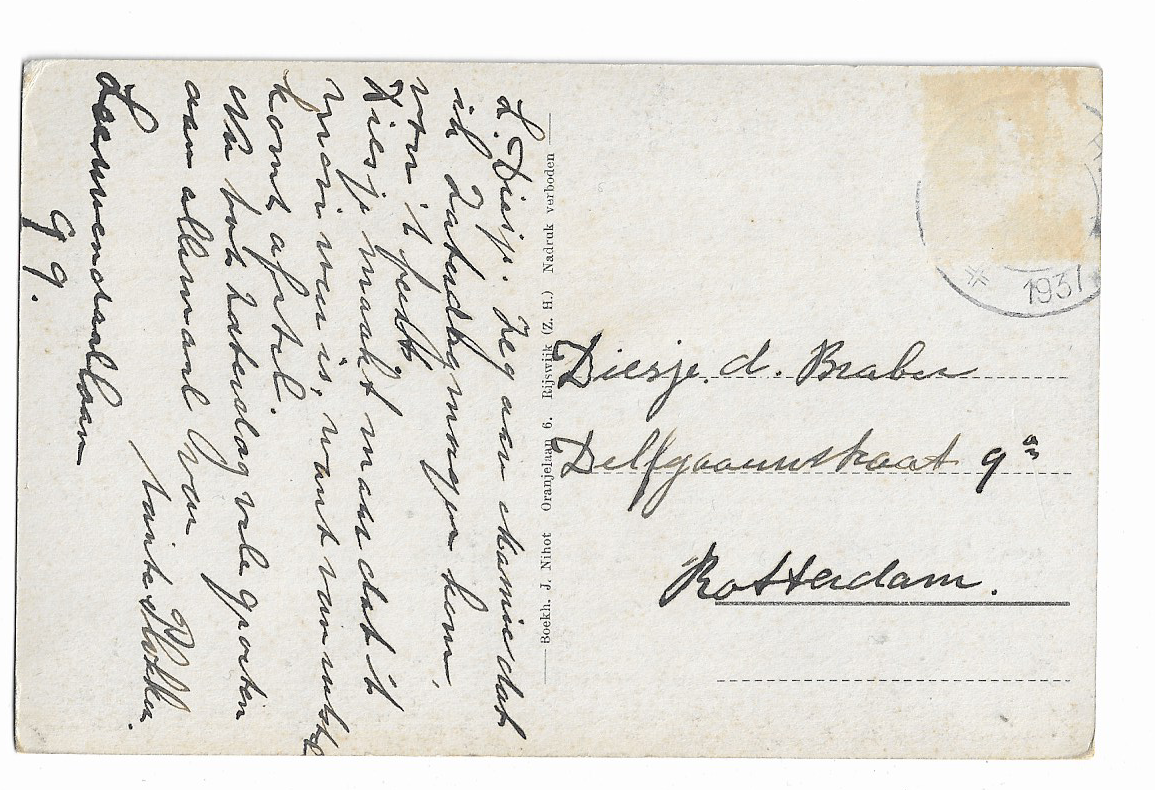 L. Diesje. Zeg aan mamie dat
ik Zaterdag morgen kom,
voor 't feest.
Diesje maakt maar dat 't
mooi weer is, want van
komt aftel.
Nu tot zaterdag vele groeten
aan allemaal van
tante
Leeuwendaallaan
99.
Boekh. J. Nihot Oranjelaan 6. Rijswijk (Z. H.) Nadruk verboden
1937
Diesje. d. Braber
Delfgaauwstraat 9a
Rotterdam.